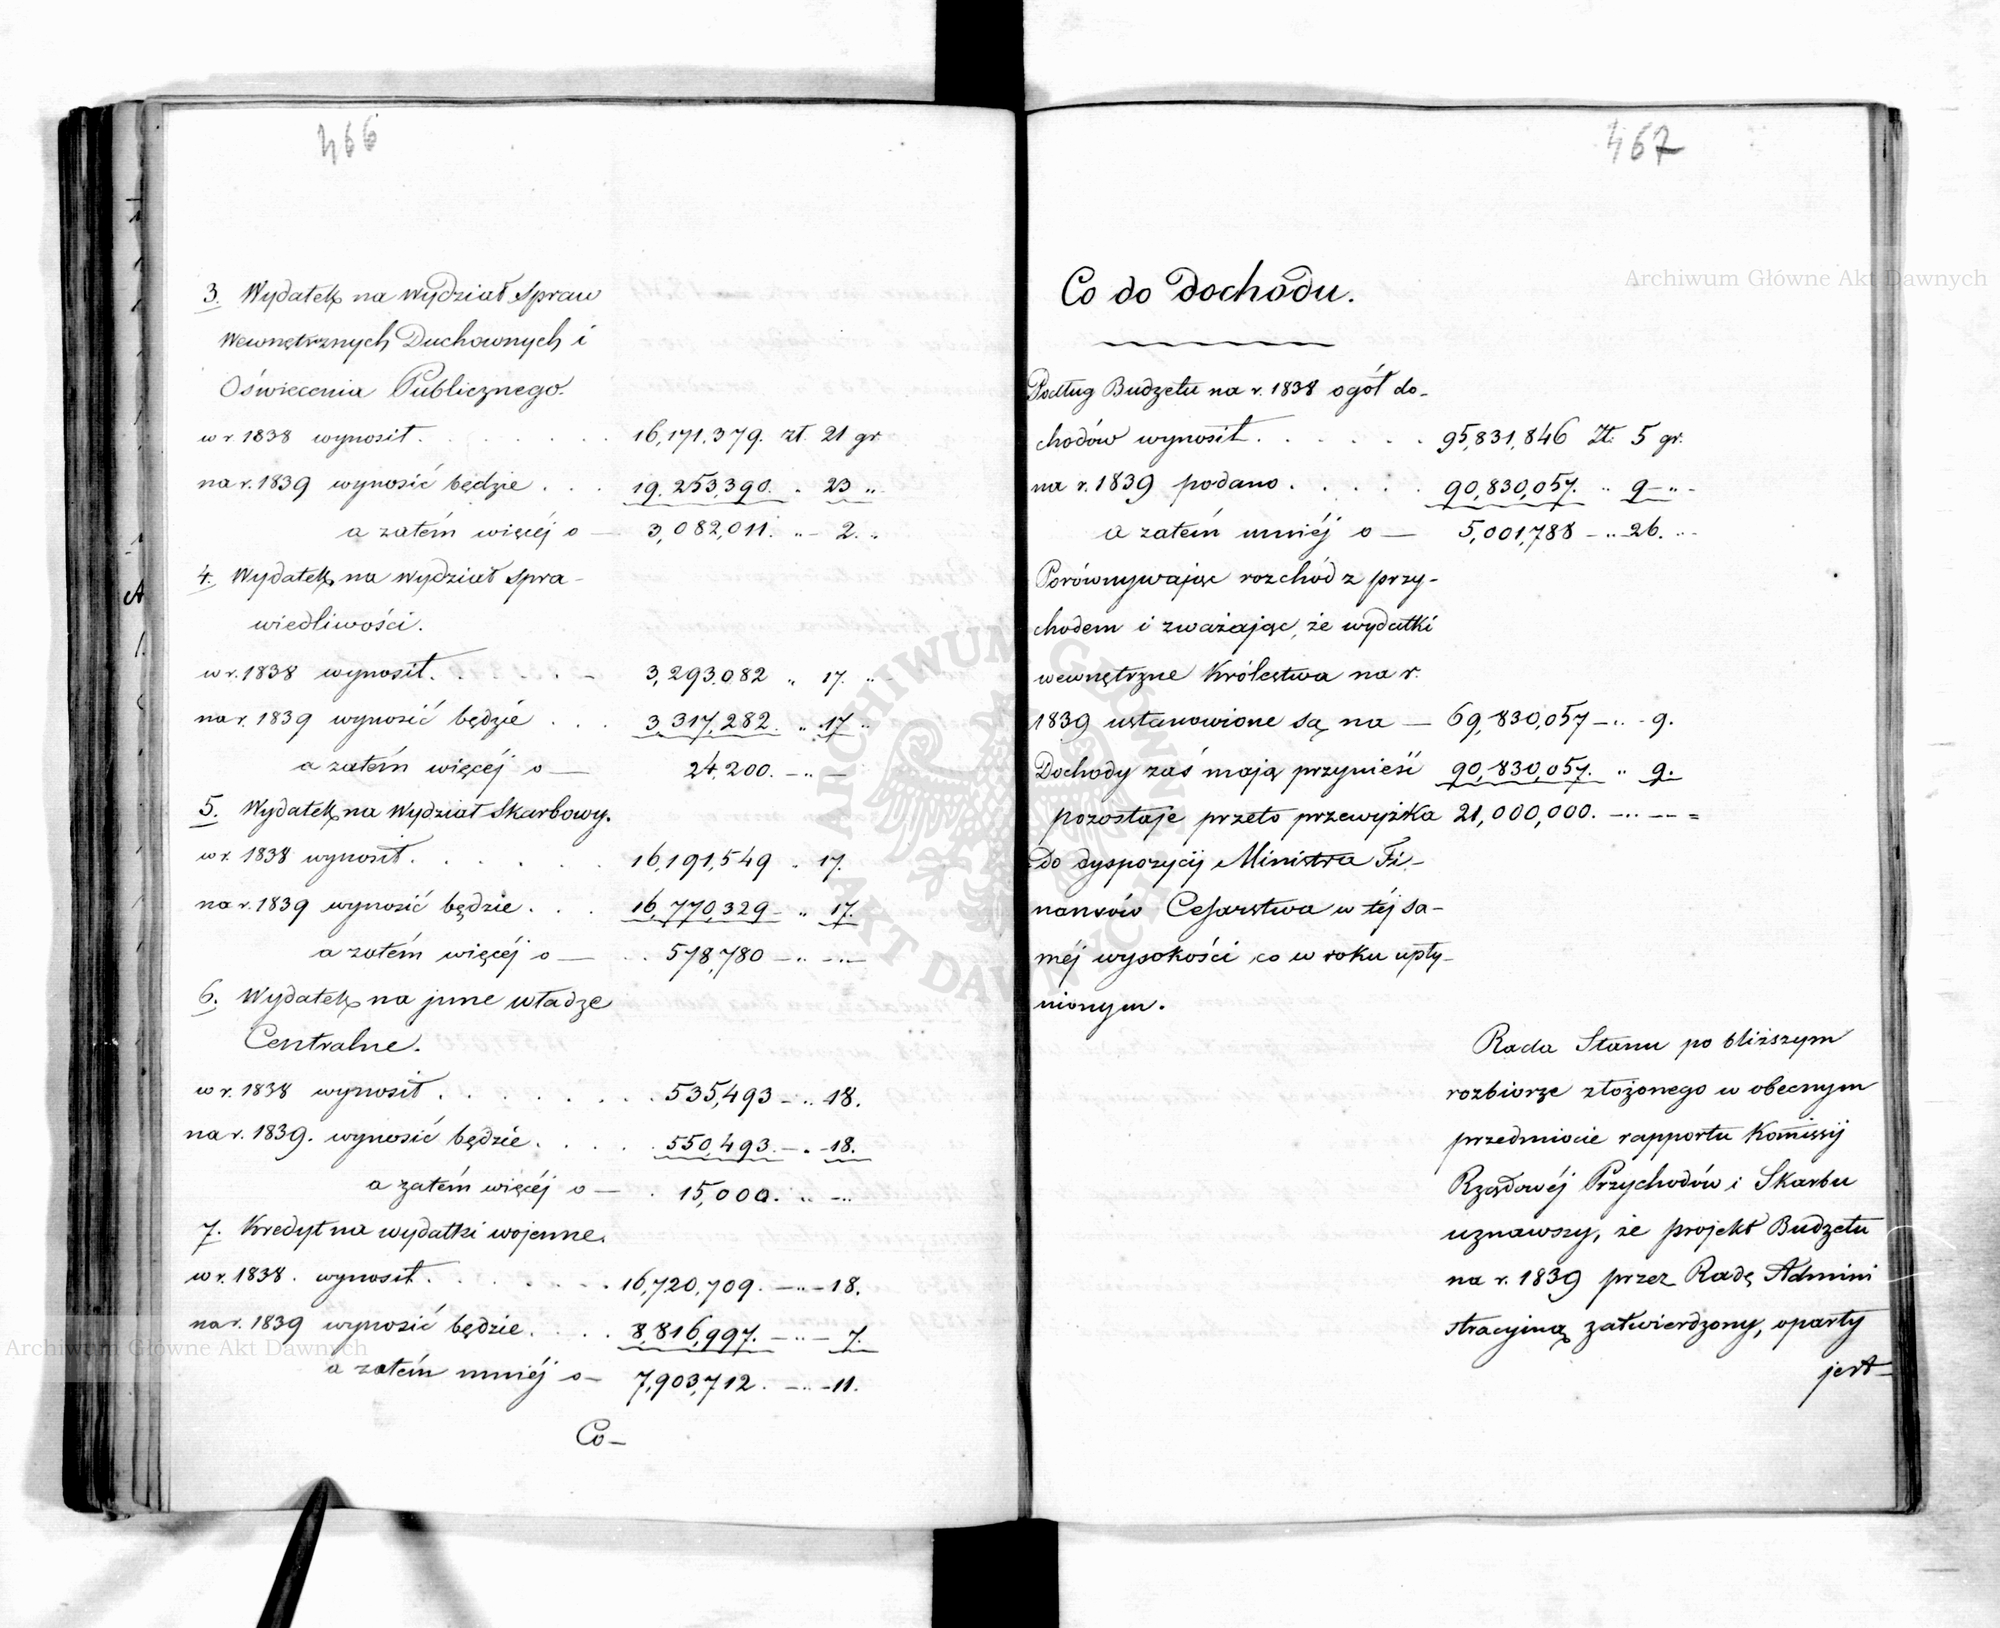 466
3. Wydatek na wydział Spraw
Wewnętrznych Duchownych i
Oświecenia Publicznego.
w r. 1838 wynosił . . . . . . . 16,171,379. zł. 21 gr
na r. 1839 wynosić będzie . . . 19.253,390. „ 23 „
a zatém więcéj o — 3,082,011. „ — 2. „
4. Wydatek na wydział Spra-
wiedliwości.
w r. 1838 wynosił. . . . . — 3,293.082 „ 17. „
na r. 1839 wynosić będzie . . . 3,317,282. „ 17 „
a zatém więcéj o — 24,200. — „ —
5. Wydatek na Wydział Skarbowy.
w r. 1838 wynosił. . . . . . 16,191,549 „ 17.
na r. 1839 wynosić będzie . . . 16,770,329 — „ 17.
a zatém więcéj o — . . 578,780 — „ — „ —
6. Wydatek na jnne władze
Centralne.
w r. 1838 wynosił . . . . . . . . 535,493 — „ 18.
na r. 1839. wynosić będzie . . . . . 550,493. — „ -18.
a zatém więcéj o — . 15,000. „ — „
7. Kredyt na wydatki wojenne.
w r. 1838 . wynosił. . . . . . . 16,720,709. — „ — 18.
na r. 1839 wynosić będzie . . . . 8,816,997. — „ — 7.
a zatém mniéj o — 7,903,712. — „ — 11.
Co —
467
Co do dochodu.
Podług Budżetu na r. 1838 ogół do-
chodów wynosił . . . . . . 95,831,846 Zł. 5 gr.
na r. 1839 podano . . . . . 90,830,057. „ 9 — „ -
a zatém mniéj o — 5,001,788 — „ 26. „ -
Porównywając rozchód z przy-
chodem i zważając, że wydatki
wewnętrzne Królestwa na r.
1839 ustanowione są na — 69,830,057 — „ - 9.
Dochody zaś mają przynieść 90,830,057. „ 9.
pozostaje przeto przewyżka 21,000,000. — „ — =
Do dyspozycij Ministra Fi-
nansów Cesarstwa w téj sa-
méj wysokości co w roku upły-
nionym.
Rada Stanu po bliższym
rozbiorze złożonego w obecnym
przedmiocie rapportu Komissij
Rządowéj Przychodów i Skarbu
uznawszy, że projekt Budżetu
na r. 1839 przez Radę Admini
stracyjną zatwierdzony, oparty
jest —
Archiwum Główne Akt Dawnych
Archiwum Główne Akt Dawnych
ARCHIWUM GŁÓWNE AKT DAWNYCH